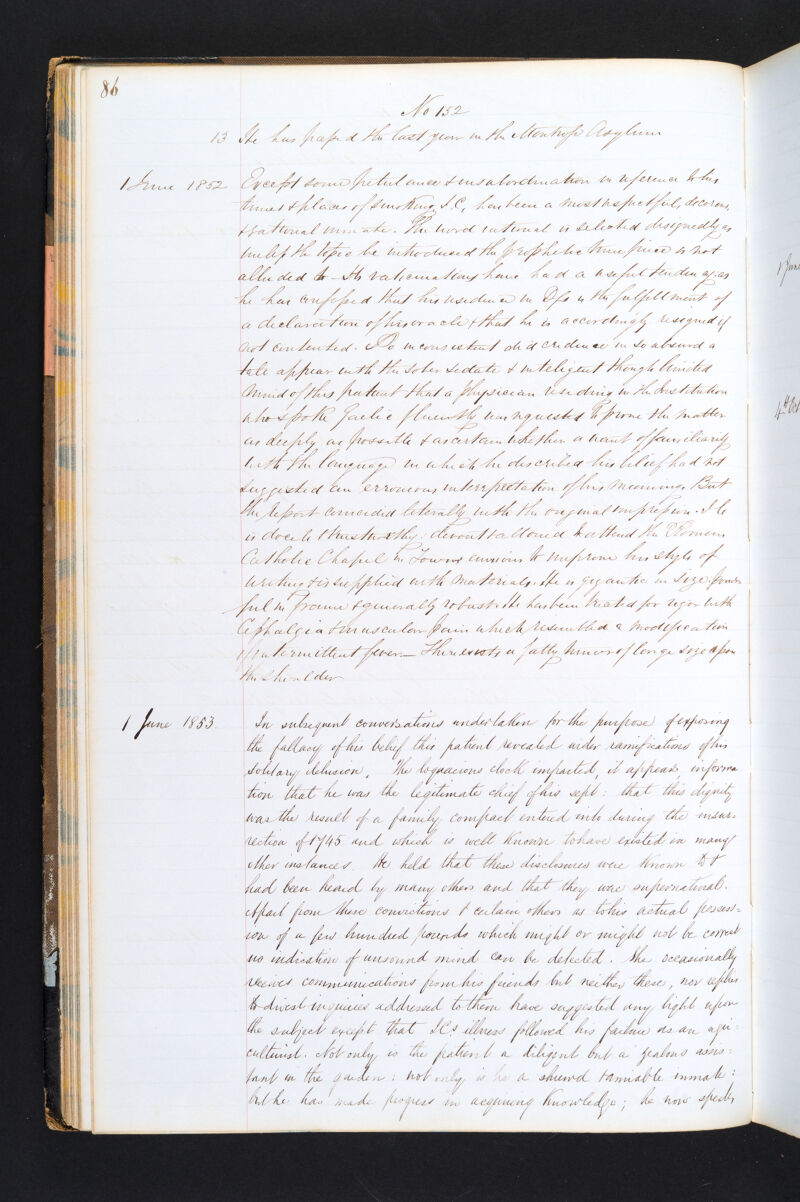 86
No 152
13 He has passed the last year in the Montrose Asylum
1 June 1852 Except some petulance & insubordination in reference to his
times & places of smoking, I.C. has been a most respectful, decorous
& rational inmate. The word rational is selected designedly as
unless the topic be introduced the prophetic time piece is not
alluded to – Its vaticinations have had a useful tendency, as
he has confessed that his residence in Dfs is the fulfillment of
a declaration of his oracle & that he is accordingly resigned if
not contented. So inconsistent did credence in so absurd a
tale appear with the sober sedate & intelligent though limited
mind of this patient that a physician residing in the Institution
who spoke Gaelic fluently was requested to probe the matter
as deeply as possible & ascertain whether a want of familiarity
with the language in which he described his belief had not
suggested an erroneous interpretation of his meaning. But
the report coincided literally with the original impression. He
is docile & trustworthy: devout & allowed to attend the Roman
Catholic Chapel in Town: anxious to improve his style of
writing & is supplied with materials. He is gigantic in size power
ful in frame & generally robust. He has been treated for with
Cephalgia & muscular pain which resembled a modification
of intermittent fever – There exists a fatty tumor of large size upon
the shoulder
1 June 1853. In subsequent conversations undertaken for the purpose of exposing
the fallacy of his belief this patient revealed wider ramifications of his
solitary delusion. The loquacious clock imparted, it appears, informa
tion that he was the legitimate chief of his sept: that this dignity
was the result of a family compact entered into during the insur-
rection of 1745 and which is well known to have existed in many
other instances. He held that these disclosures were known to &
had been heard by many others and that they were supernatural.
Apart from these convictions & certain others as to his actual possess-
ion of a few hundred pounds which might or might not be correct
no indication of unsound mind can be detected. He occasionally
receives communications from his friends but neither these, nor replies
to direct inquiries addressed to them have suggested any light upon
the subject except that I.C.s illness followed his failure as an agri-
culturist. Not only is the patient a diligent but a zealous assis-
tant in the garden: not only is he a shrewd & amiable inmate:
but he has made progress in acquiring knowledge; he now speaks
1 June
4th Oct